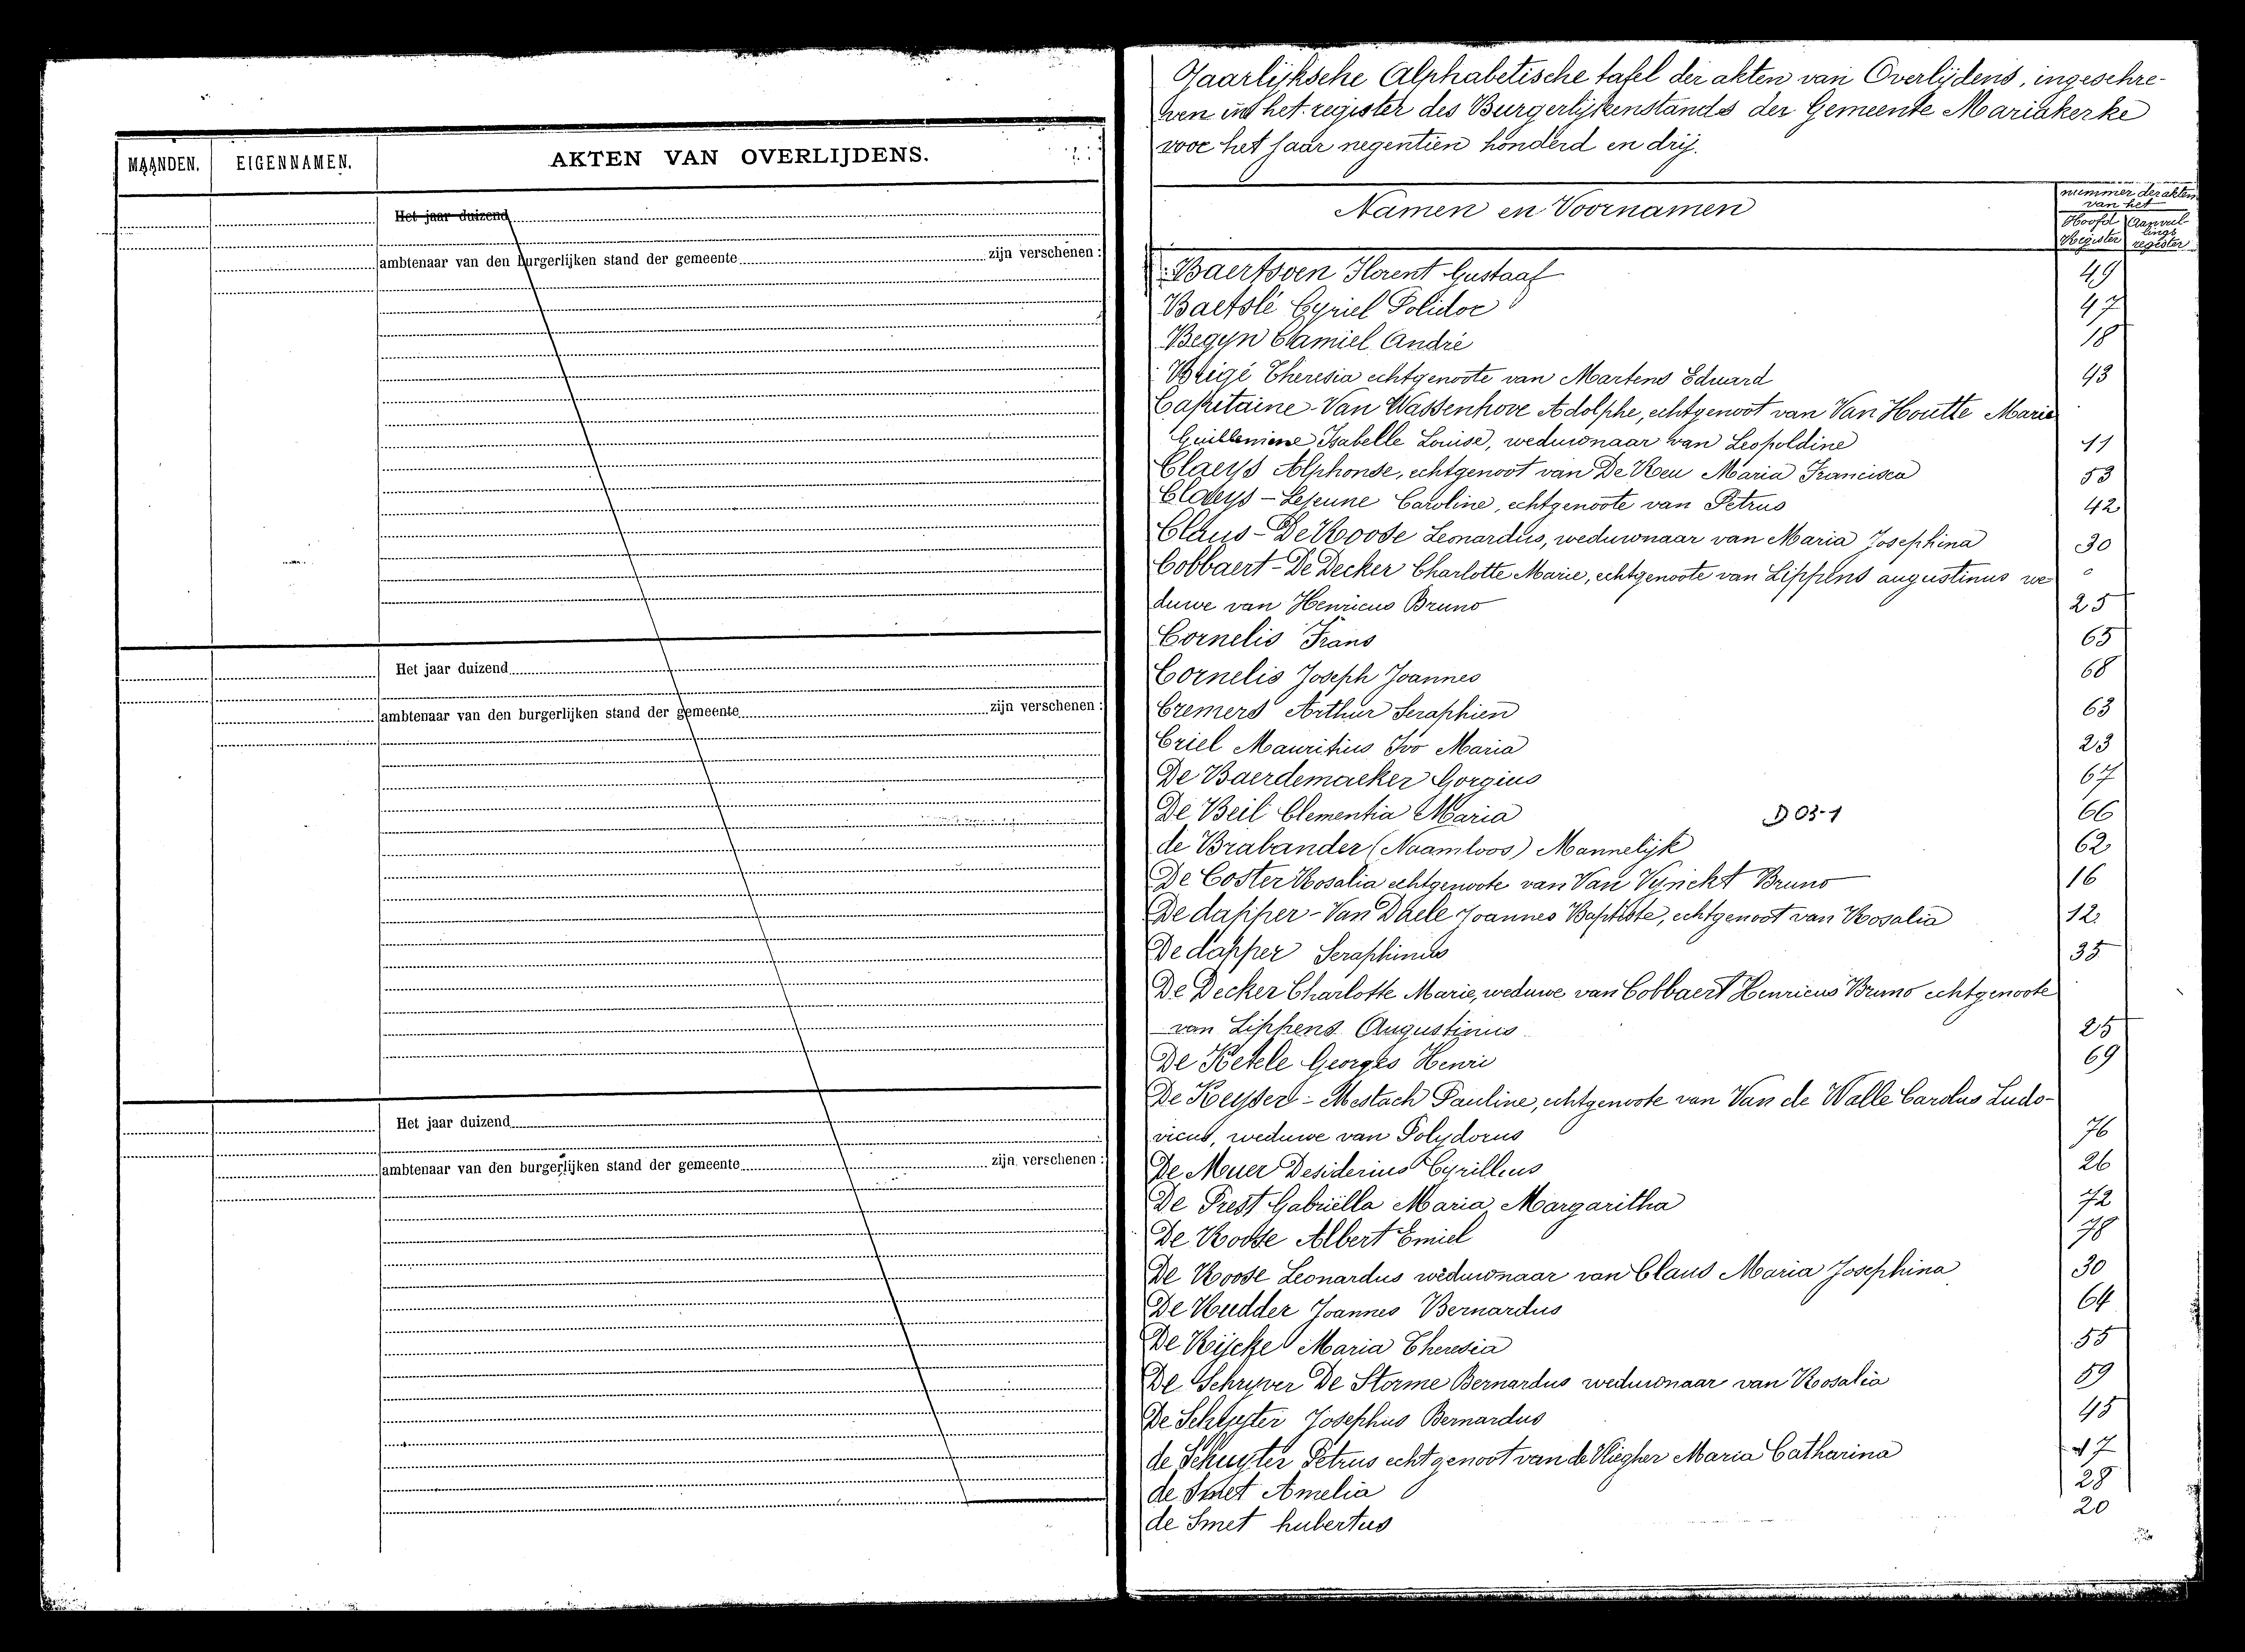 MAANDEN.
EIGENNAMEN.
AKTEN VAN OVERLIJDENS.
Het jaar duizend
ambtenaar van den burgerlijken stand der gemeente zijn verschenen :
Het jaar duizend
ambtenaar van den burgerlijken stand der gemeente zijn verschenen :
Het jaar duizend
ambtenaar van den burgerlijken stand der gemeente zijn verschenen :
Jaarlijksche Alphabetische tafel der akten van Overlijdens, ingeschre-
ven in het register des Burgerlijkenstands der Gemeente Mariakerke
voor het jaar negentien honderd en drij.
Namen en Voornamen
nummer der akten
van het
Hoofd Register
Aanvullings register
Baertsoen Florent Gustaaf 49
Baetslé Cyriel Polidor 47
Begyn Camiel André 18
Theresia echtgenoote van Martens Eduard 43
Capitaine-Van Wassenhove Adolphe, echtgenoot van Van Houtte Marie
Isabelle Louise, weduwnaar van Leopoldine 11
Claeys Alphonse, echtgenoot van De Reu Maria Francisca 53
Claeys-Lejeune Caroline, echtgenoote van Petrus 42
Claus-De Roose Leonardus, weduwnaar van Maria Josephina 30
Cobbaert-De Decker Charlotte Marie, echtgenoote van Lippens augustinus we
duwe van Henricus Bruno 25
Cornelis Frans 65
Cornelis Joseph Joannes 68
Cremers Arthur Seraphien 63
Criel Mauritius Ivo Maria 23
De Baerdemaeker Gorgius 67
De Beil Clementia Maria D 03-1 66
de Brabander (Naamloos) Mannelijk 62
De Coster Rosalia echtgenoote van Van Vynckt Bruno 16
De dapper-Van Daele Joannes Baptiste, echtgenoot van Rosalia 12
De dapper Seraphinus 35
De Decker Charlotte Marie, weduwe van Cobbaert Henricus Bruno echtgenoote
van Lippens Augustinus 25
De Ketele Georges Henri 69
De Keyser-Mestach Pauline, echtgenoote van Van de Walle Carolus Ludo-
vicus, weduwe van Polydorus 76
De Muer Desiderius Cyrillus 26
De Prest Gabriëlla Maria Margaritha 72
De Roose Albert Emiel 78
De Roose Leonardus weduwnaar van Claus Maria Josephina 30
De Rudder Joannes Bernardus 64
De Rijcke Maria Theresia 55
De Schryver De Storme Bernardus weduwnaar van Rosalia 59
De Schuyter Josephus Bernardus 45
de Schuyter Petrus echtgenoot van de Vliegher Maria Catharina 17
de Smet Amelia 28
de Smet hubertus 20